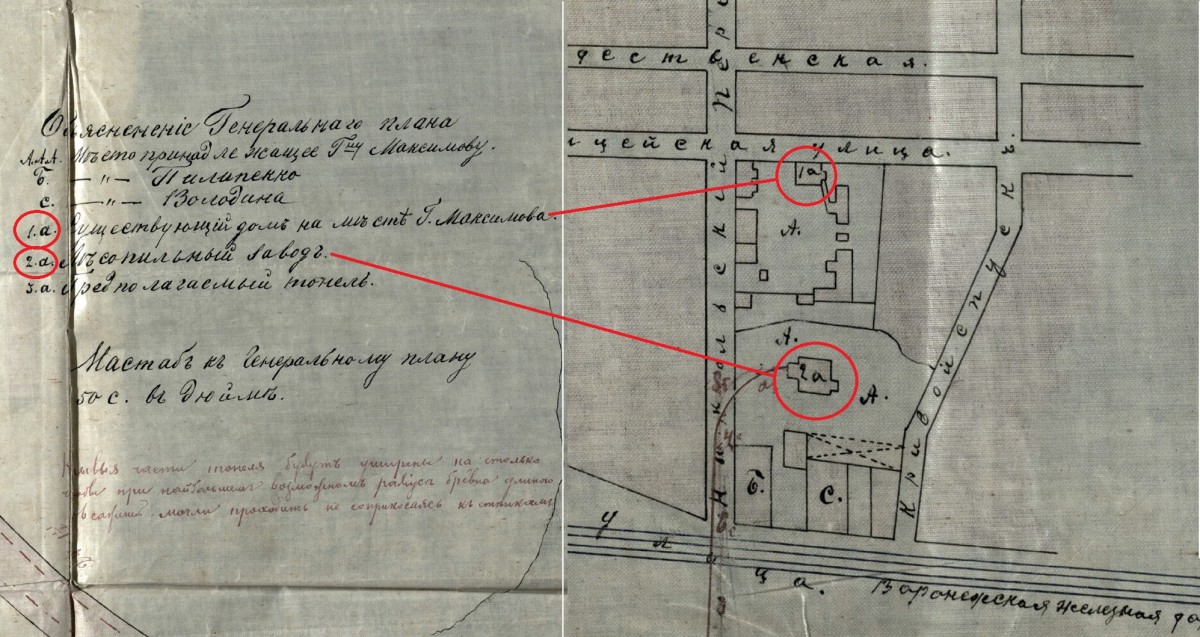 Объяснененіе Генеральнаго плана
А.А.А. Мѣсто принадлежащее Гну Максимову.
Б. — „ — Пилапенко
С. — „ — Володина
1.а. Существующій домъ на мѣстѣ Г. Максимова.
2.а. Лѣсопильный заводъ.
3.а. Предполагаемый тонель.
Мастабъ къ Генеральному плану
50 с. въ Дюймѣ.
Кривыя части тонеля будутъ уширены на столько
чтобы при наибольшемъ возможномъ радіусѣ бревна длиною
могли проходить не соприкасаясь къ стѣнкамъ
дественская.
ицейская улица.
Никольскій Пер
Кривой спускъ.
1а
А.
А.
2а
А.
Б.
С.
Улица.
Воронежская железная до